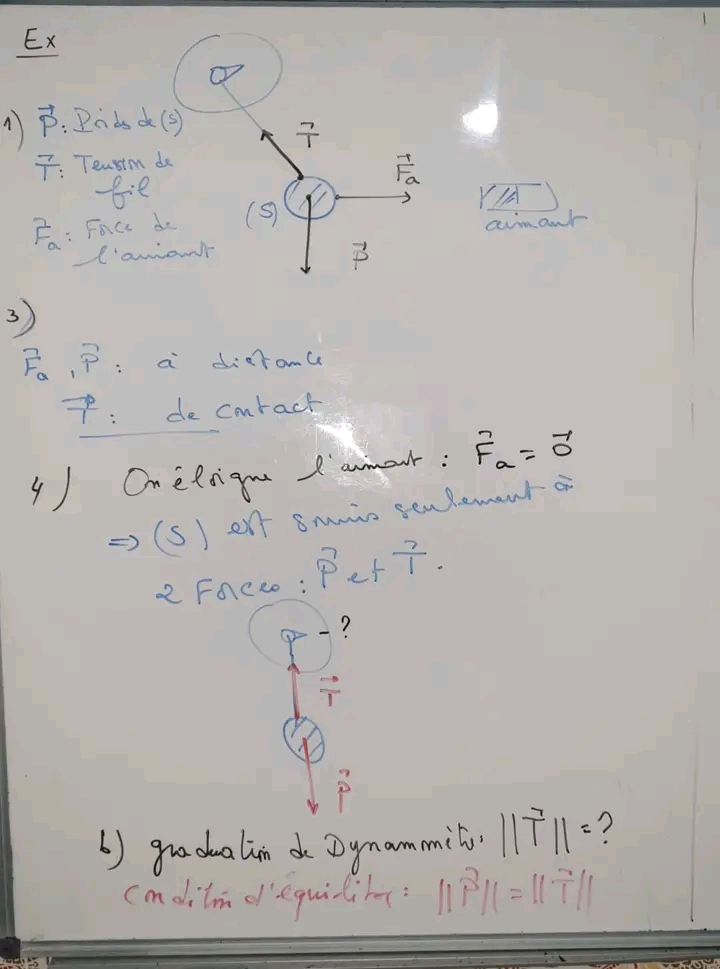 Ex
1) P⃗: Poids de (S)
T⃗: Tension de
fil
F⃗a: Force de
l'aimant
T⃗
F⃗a
(S)
P⃗
aimant
3)
F⃗a, P⃗: à distance
T⃗: de contact
4) On éloigne l'aimant: F⃗a = 0⃗
=> (S) est soumis seulement à
2 Forces: P⃗ et T⃗.
- ?
T⃗
P⃗
b) graduation de Dynammètre. ||T⃗|| = ?
Condition d'équilibre: ||P⃗|| = ||T⃗||